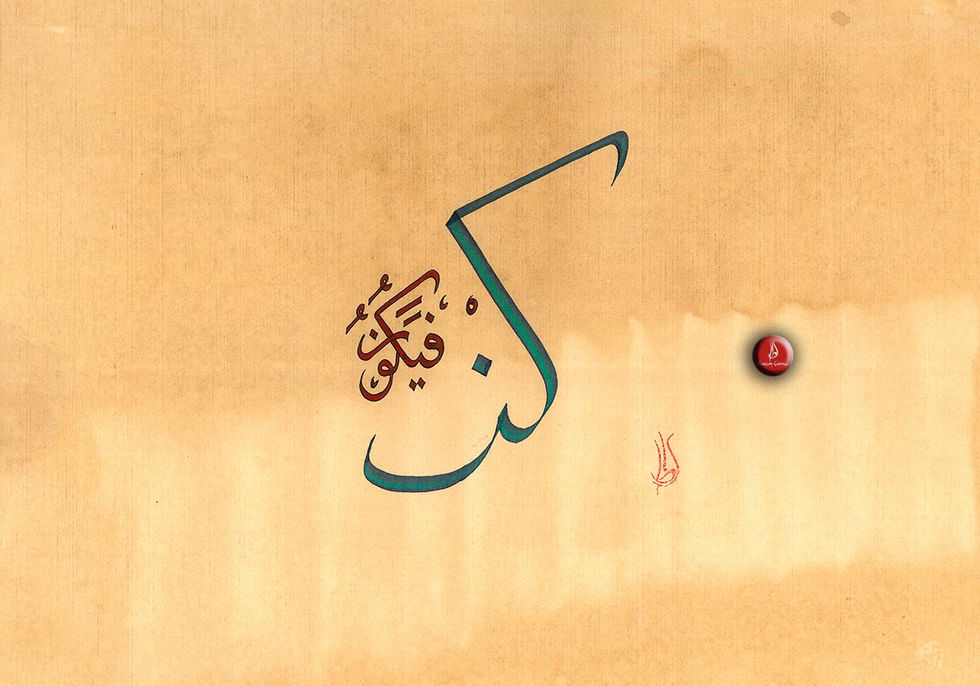 كنْ
فَيَكُونُ